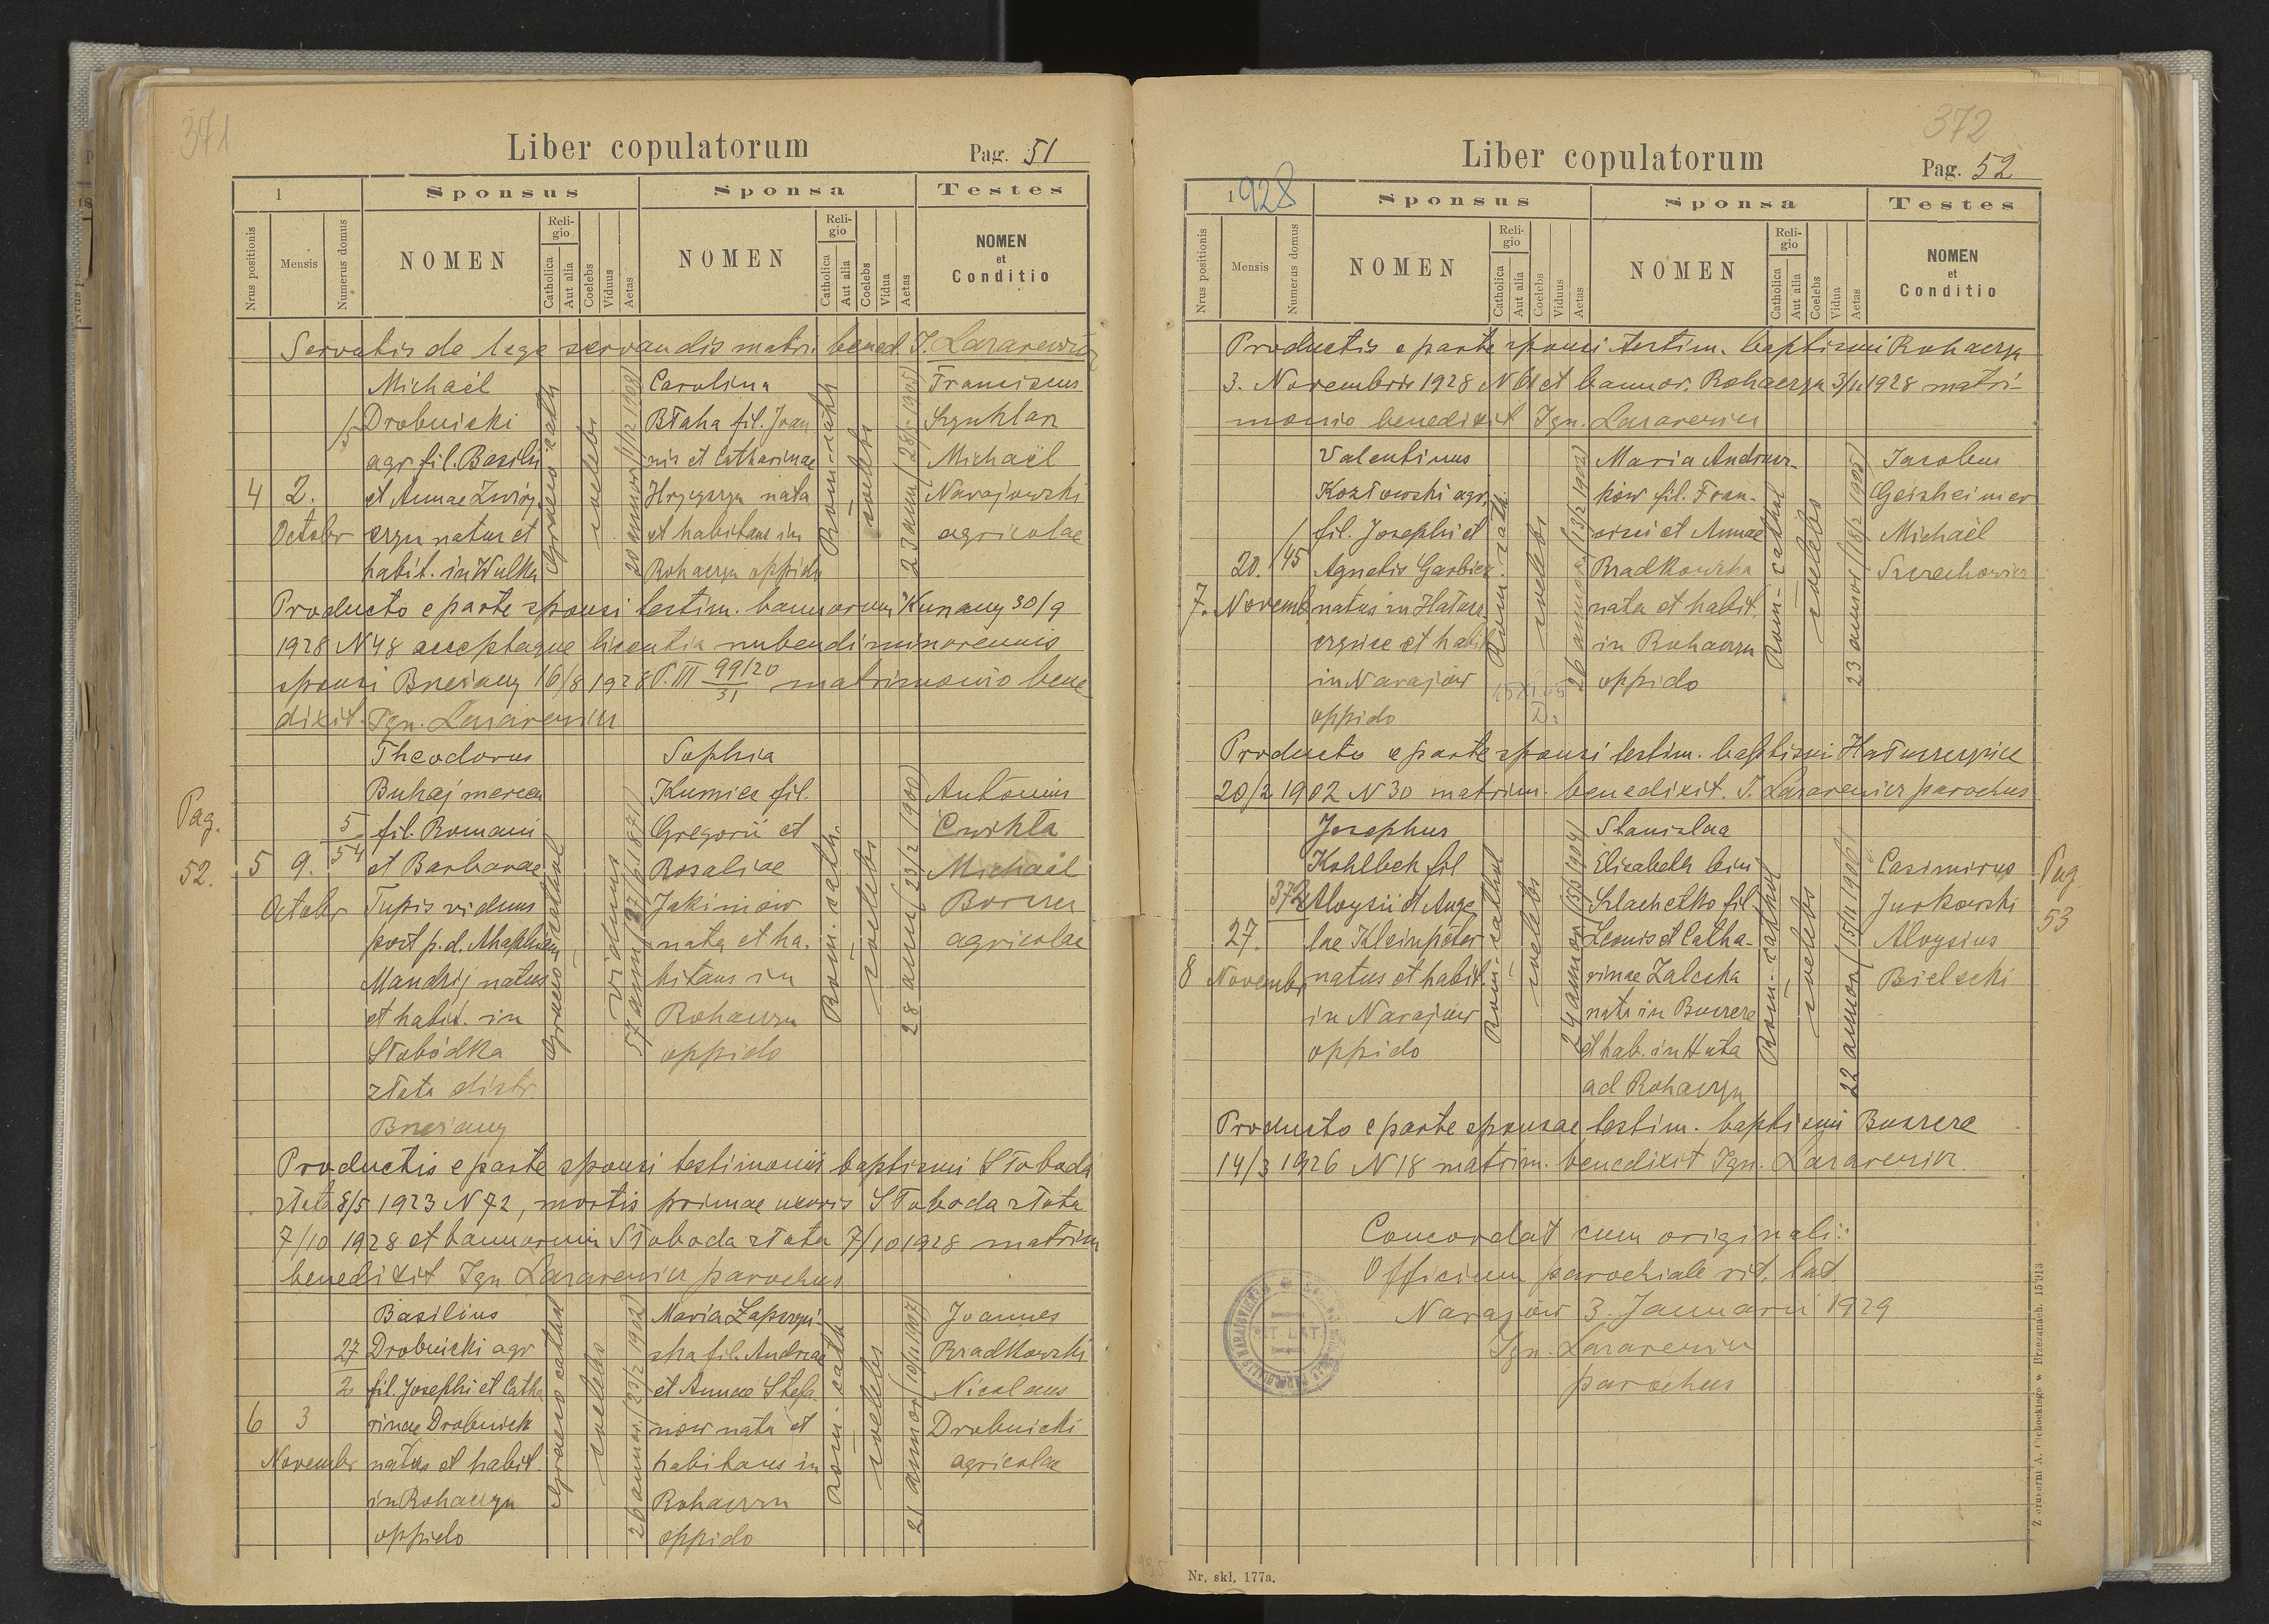 371
Liber copulatorum
Pag. 51
1
Sponsus
Sponsa
Testes
Nrus positionis
Mensis
Numerus domus
NOMEN
Religio
Catholica
Aut alia
Coelebs
Viduus
Aetas
NOMEN
Religio
Catholica
Aut alia
Coelebs
Vidua
Aetas
NOMEN
et
Conditio
Servatis de lege servandis matri. bened. I. Lazarewicz
4
2.
Octobr
Michaël
Drobnicki
agr fil. Basilii
et Annae
natus et
habit. in Wulka
Graeco cath
coelebs
20 annor
Carolina
Błaha fil. Joan
nis et Catharinae
nata
et habitans in
Rohaczyn oppido
Rom. cath
coelebs
23 ann
Franciscus
Szynklarz
Michaël
Narajowski
agricolae
Producto e parte sponsi testim. bannorum Kunany 30/9
1928 N 48 acceptaque licentia nubendi minorennis
sponsi Brzeżany 16/8 1928 P. III 99/20 matrimonio bene
31
dixit. Ign. Lazarewicz
Pag.
52.
5
9.
Octobr
5
54
Theodorus
Buhaj
fil. Romani
et Barbarae
Tupis viduus
post p. d.
Mandrij natus
et habit. in
Słobódka
złota distr.
Brzeżany
Graeco cathol
viduus
57 ann
Sophia
fil.
Gregorii et
Rosaliae
Jakimiów
nata et ha.
bitans in
Rohaczyn
oppido
Rom. cath.
coelebs
28 ann (23/2 1900)
Antonius
Ćwikła
Michaël
agricolae
Productis e parte sponsi testimonii baptismi Słoboda
złota 8/5 1923 N 72, mortis primae uxoris Słoboda złota
7/10 1928 et bannorum Słoboda złota 7/10 1928 matrim
benedixit Ign. Lazarewicz parochus
6
3
Novembr
27
2
Basilius
Drobnicki agr
fil. Josephi et Catha
rinae Drobnick
natus et habit.
in Rohaczyn
oppido
Graeco cathol
coelebs
26 annor. (23/2 1902)
Maria
ska fil. Andreae
et Annae Stefa
now nata et
habitans in
Rohaczyn
oppido
Rom. cath
coelebs
21 annor (10/11 1907)
Joannes
Bradkowski
Nicolaus
Drobnicki
agricolae
372
Liber copulatorum
Pag. 52
1928
Sponsus
Sponsa
Testes
Nrus positionis
Mensis
Numerus domus
NOMEN
Religio
Catholica
Aut alia
Coelebs
Viduus
Aetas
NOMEN
Religio
Catholica
Aut alia
Coelebs
Vidua
Aetas
NOMEN
et
Conditio
Productis e parte sponsi testim. baptismi Rohaczyn
3. Novembris 1928 N 61 et bannor. Rohaczyn 3/11 1928 matri-
monio benedixit Ign. Lazarewicz
7.
20.
Novemb
1
45
Valentinus
Kozłowski agr.
fil. Josephi et
Agnetis Garbicz
natus in Hałusz
czyńce et habit
in Narajów
oppido
Rom. cath.
coelebs
26 annor (13/2 1902)
Maria Andrusz-
ków fil. Fran-
cisci et Annae
Bradkowska
nata et habit.
in Rohaczyn
oppido
Rom-cathol
coelebs
23 annor (18/2 1905)
Jacobus
Geisheimer
Michaël
Producto e parte sponsi testim. baptismi Hałuszczyńce
20/2 1902 N 30 matrim. benedixit. I. Lazarewicz parochus
8
27.
Novembr
372
Josephus
Kohlbek fil
Aloysii et Ange
lae Kleinpeter
natus et habit.
in Narajów
oppido
Rom. cathol
coelebs
24 annor (15/3 1904)
Stanislaa
Elisabeth bin
Szlachetko fil.
Leonis et Catha-
rinae Zaleska
nata in Buszcze
et hab. in Huta
ad Rohaczyn
Rom. cathol
coelebs
22 annor (15/11 1906)
Casimirus
Jurkowski
Aloysius
Bielecki
Pag
53
Producto e parte sponsae testim. baptismi Buszcze
14/3 1926 N 18 matrim. benedixit Ign. Lazarewicz
Concordat cum originali:
Officium parochiale rit. lat.
Narajów 3. Januarii 1929
Ign. Lazarewicz
parochus
RIT. LAT.
Nr. skł. 177a.
Z drukarni A. Cichockiego w Brzeżanach. 15 913